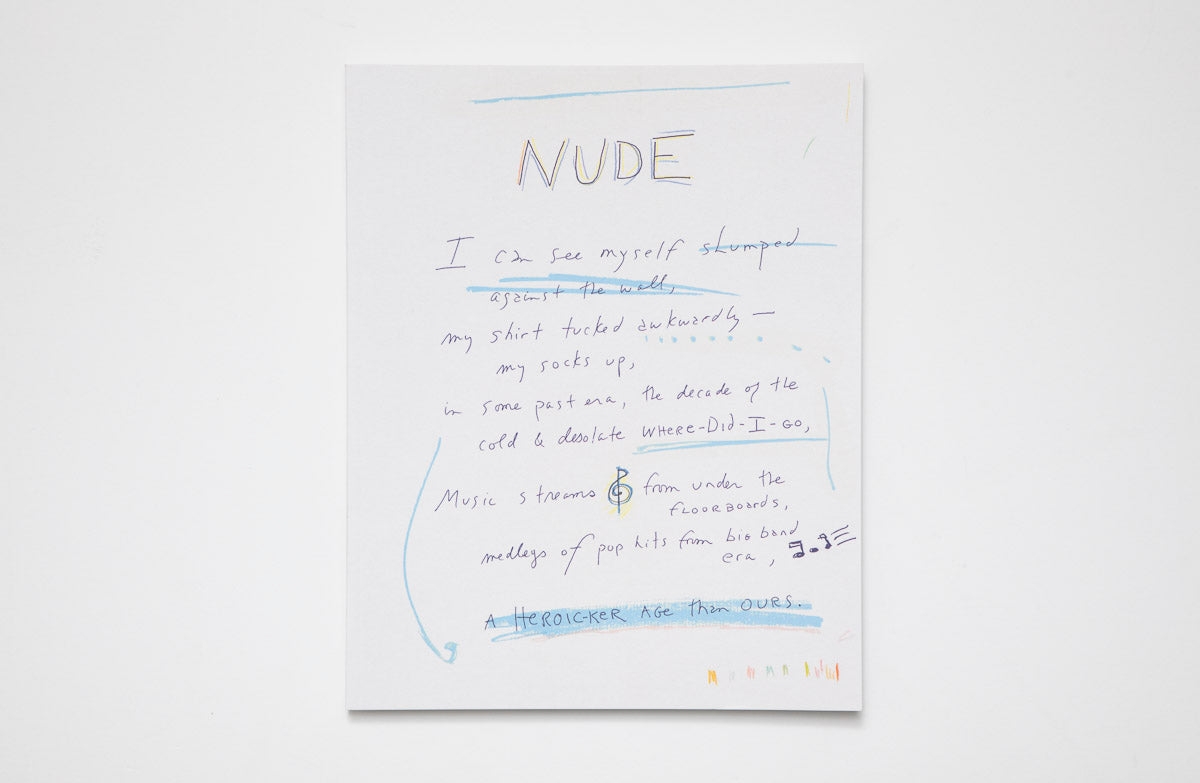 NUDE
I can see myself slumped
against the wall,
my shirt tucked awkwardly —
my socks up,
in some past era, the decade of the
cold & desolate WHERE-DID-I-GO,
Music streams from under the
FLOORBOARDS,
medleys of pop hits from big band
era,
A HEROIC-KER AGE than OURS.